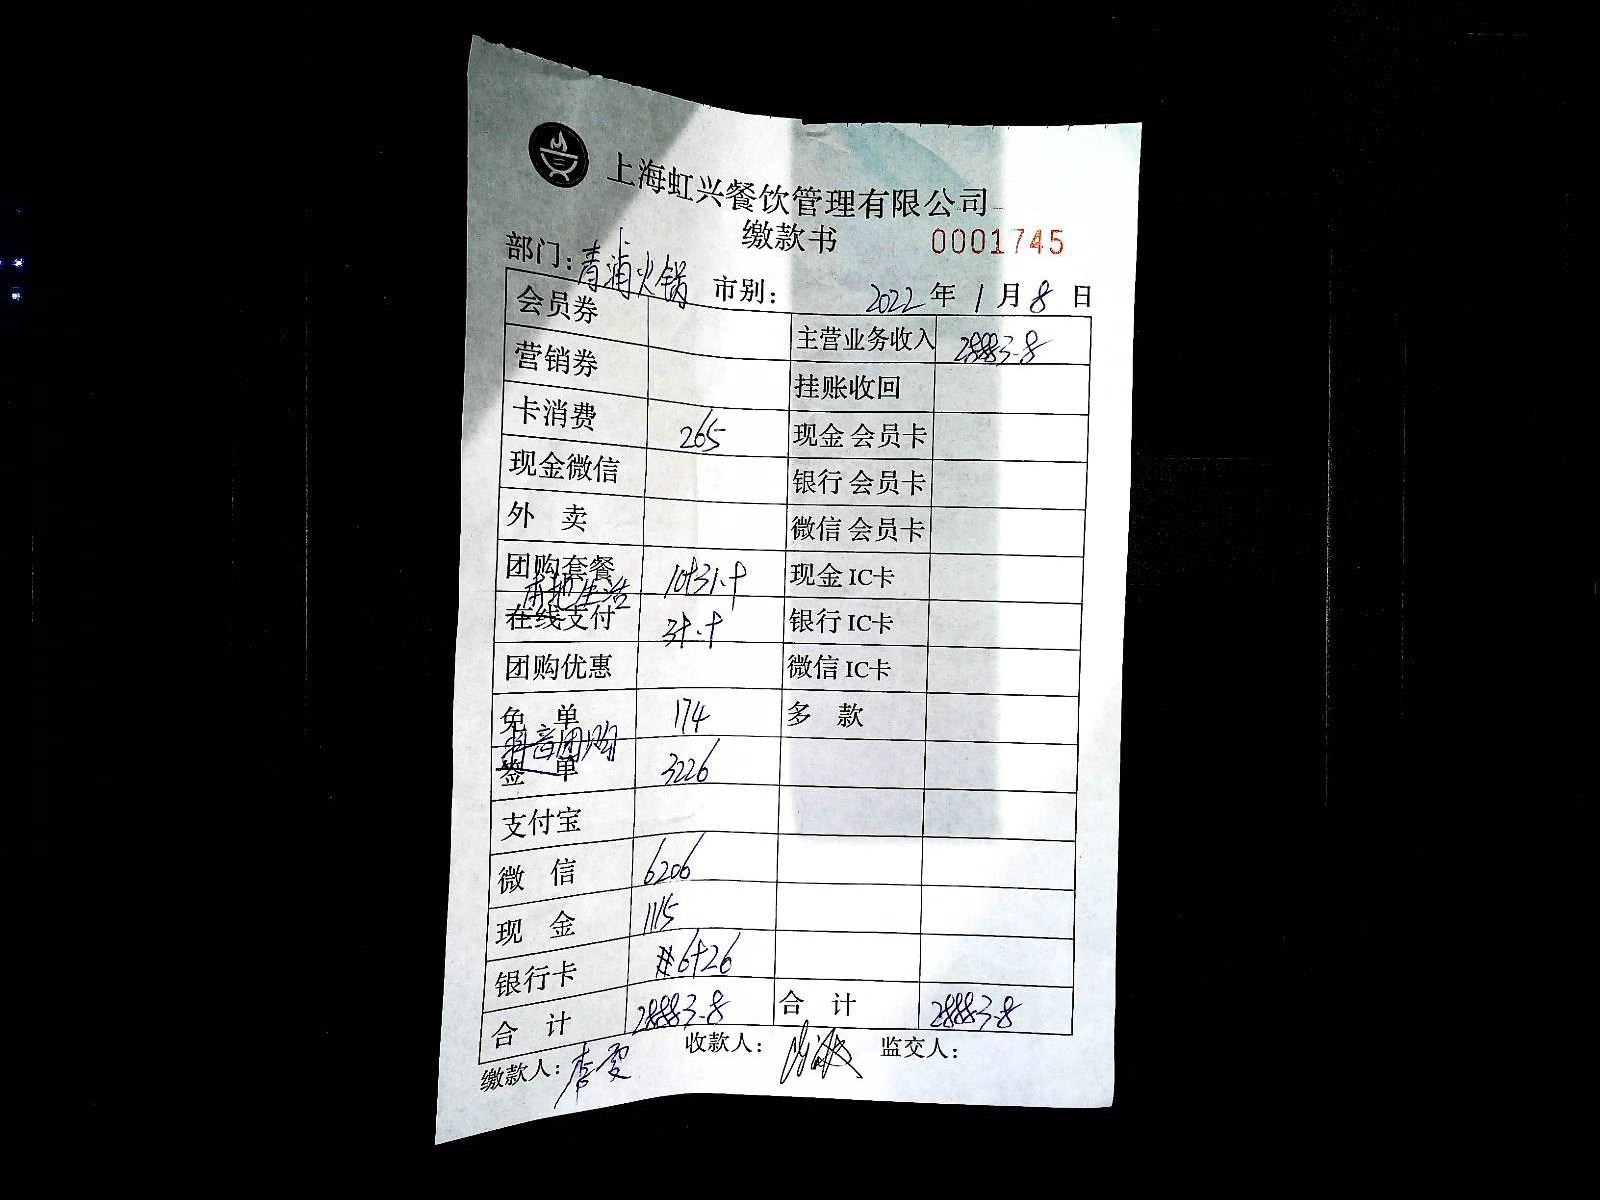 上海虹兴餐饮管理有限公司
缴款书 0001745
部门：青浦火锅 市别： 2022年1月8日
会员券 主营业务收入 28883.8
营销券 挂账收回
卡消费 265 现金 会员卡
现金微信 银行 会员卡
外 卖 微信 会员卡
团购套餐 现金 IC卡
本地生活
在线支付 银行 IC卡
团购优惠 微信 IC卡
免 单 174 多 款
抖音团购
签 单 3226
支付宝
微 信 6206
现 金 1115
银行卡
合 计 28883.8 合 计 28883.8
缴款人： 收款人： 监交人：